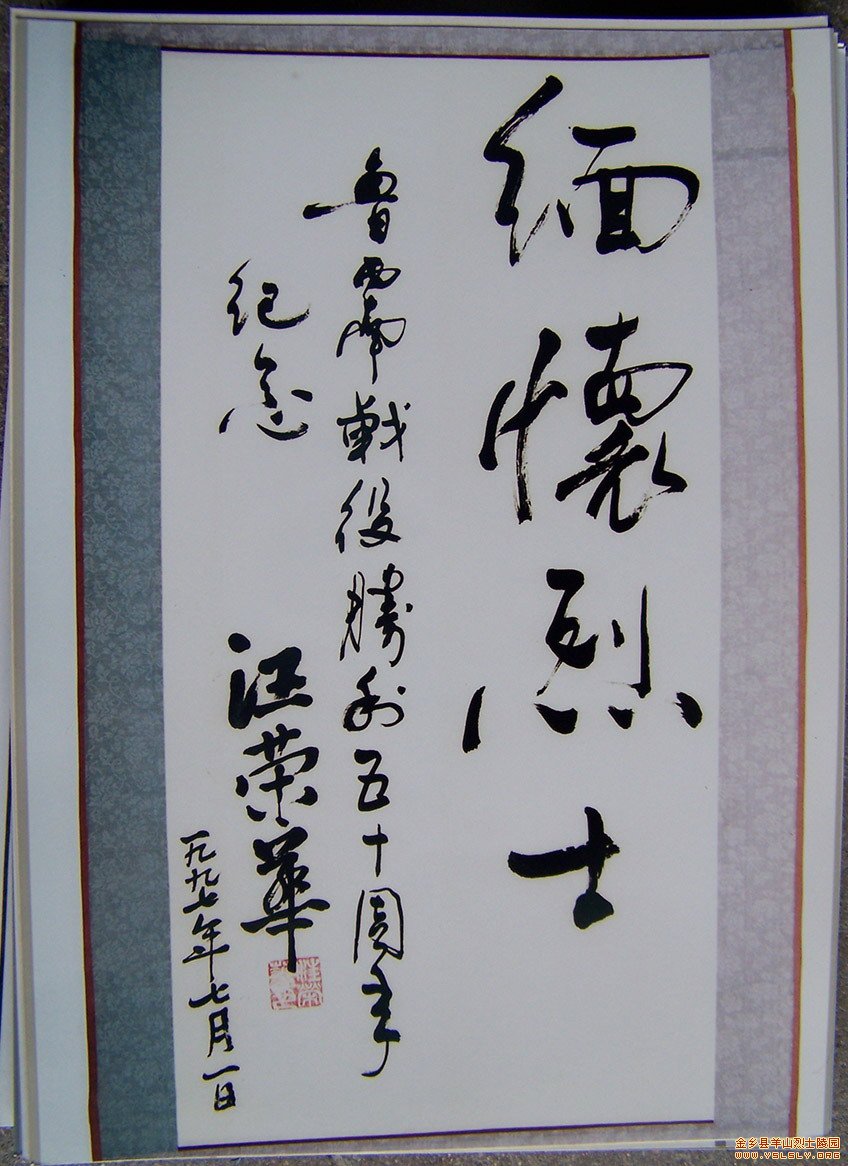 缅懷烈士
鲁西南战役勝利五十周年
纪念
汪荣華
一九九七年七月一日
汪荣華
金乡县羊山烈士陵园
WWW.YSLSLY.ORG